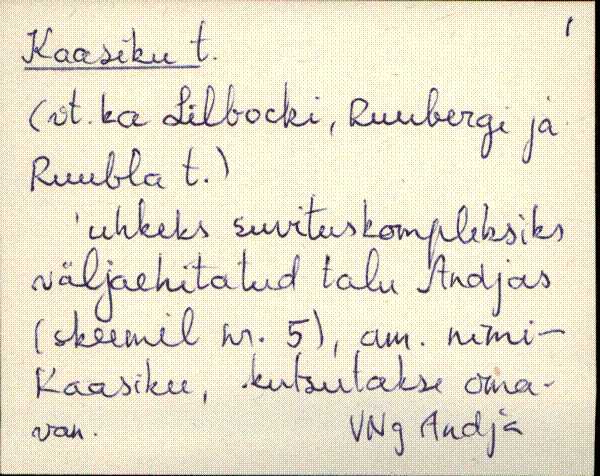 1
Kaasiku t.
(vt. ka Lilbocki, Ruubergi ja
Ruubla t.)
'uhkeks suvituskompleksiks
väljaehitatud talu Andjas
(skeemil nr. 5), am. nimi-
Kaasiku, kutsutakse oma-
van. VNg Andja